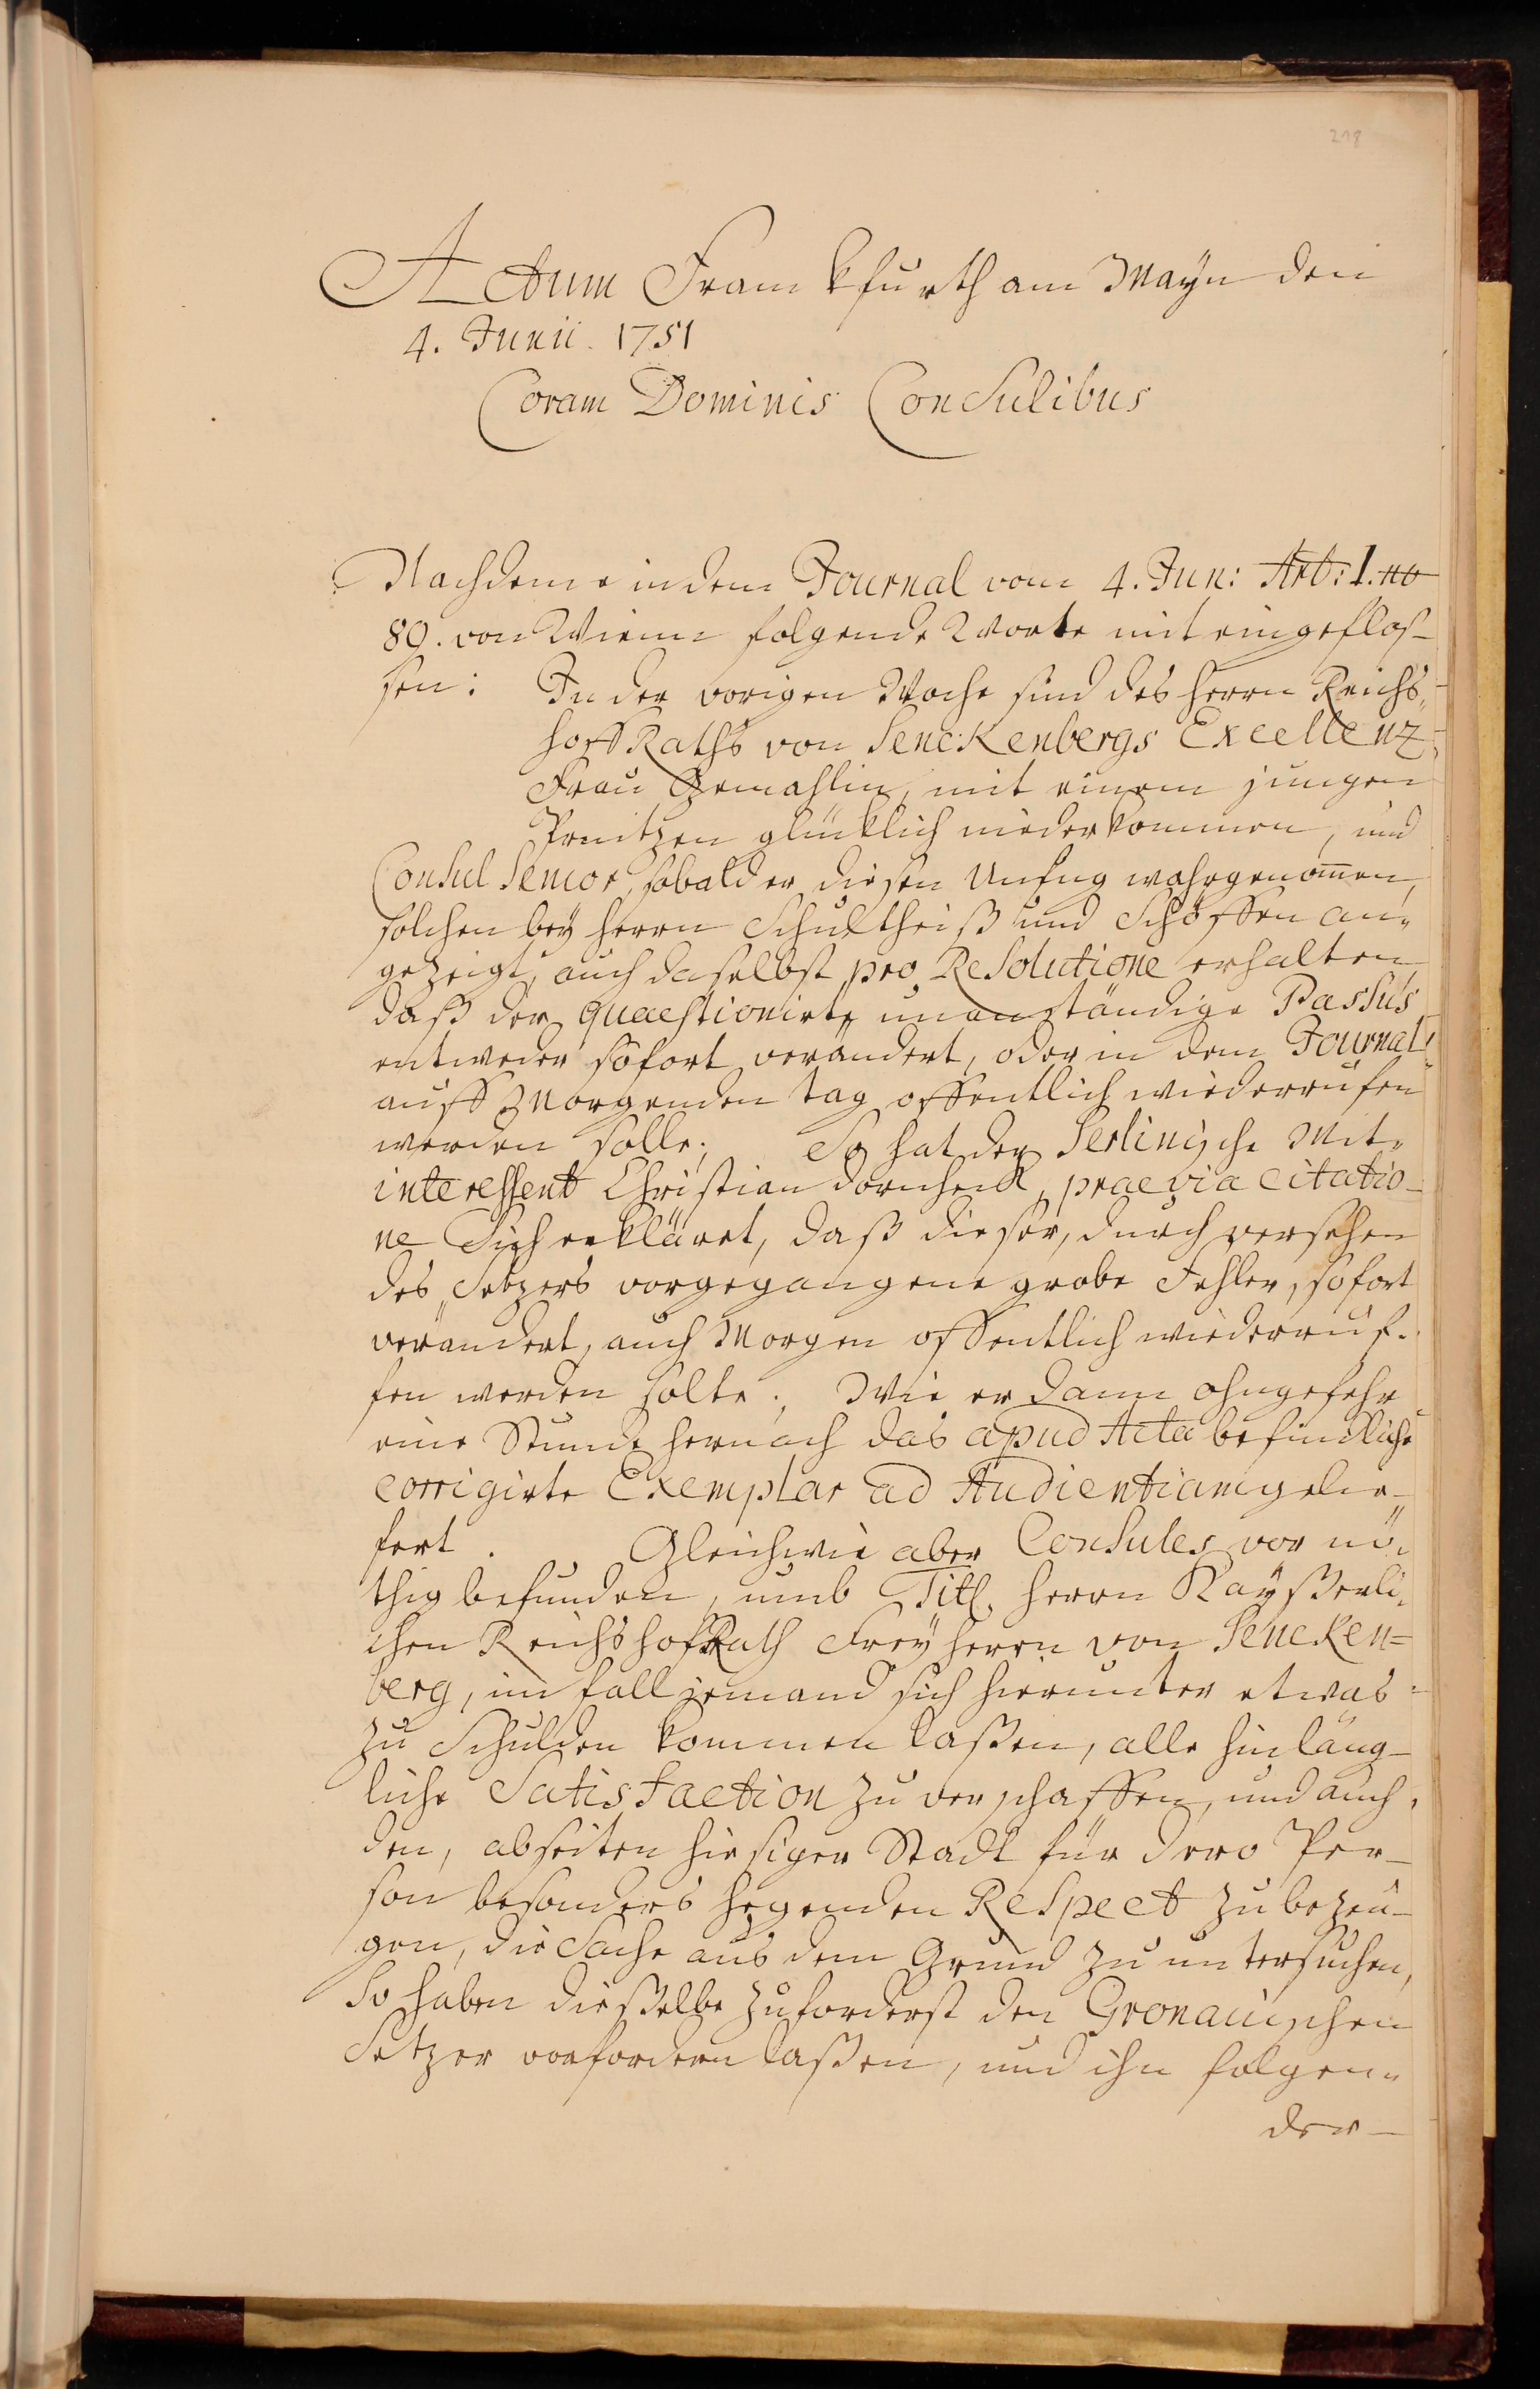 218
Actum Franckfurth am Mayn den
4. Junii. 1751
Coram Dominis Consulibus
Nachdeme in dem Journal vom 4. Jun: Art: 1. no
89. von Wienn folgende Worte mit eingeflos-
sen: In der vorigen Woche sind des Herrn Reichs-
hoffRaths von Senckenbergs Excellenz
Frau Gemahlin, mit einem jungen
Printzen glücklich niederkommen, und
Consul Senior, sobald er diesen Unfug wahrgenom̄en,
solchen bey Herrn Schultheiß und Schöffen an-
gezeigt, auch daselbst pro Resolutione erhalten,
daß der quaestionirte unanständige Passus
entweder sofort verändert, oder in dem Journal
auff Morgenden tag offentlich wiederrufen
werden solle; So hat der Serlinische Mit-
interessent Christian Dornheck, praevia citatio-
ne Sich erkläret, daß dieser, durch versehen
des Setzers vorgegangene grobe Fehler, sofort
verändert, auch Morgen offentlich wiederruf-
fen werden solte; Wie er dann ohngefehr
eine Stunde hernach das apud Acta befindliche
corrigirte Exemplar ad Audientiam gelie-
fert. Gleichwie aber Consules vor nö-
thig befunden, umb Titl. Herrn Kayßerli-
chen ReichshofRath Freyherrn von Sencken=
berg, im fall jemand sich hierunter etwas
zu Schulden kommen laßen, alle hinläng-
liche Satisfaction zu verschaffen, und auch
den, abseiten hiesiger Stadt für dero Per-
son besonders hegenden Respect zu bezeu-
gen, die Sache aus dem Grund zu untersuchen,
So haben dieselbe zuforderst den Gronauischen
Setzer vorfordern laßen, und ihn folgen-
der-